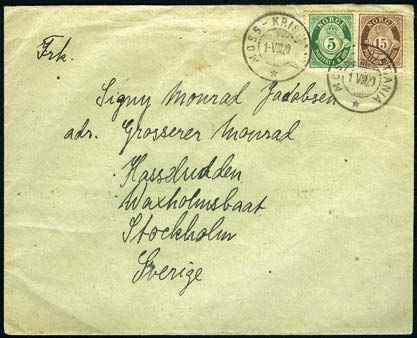 MOSS-KRISTIANIA
1-VIII20
NORGE
5
NORGE
15
MOSS-KRISTIANIA
1 VIII20
Frk.
Signy Monrad Jacobsen
adr. Grosserer Monrad
Hassdudden
Waxholmsbaat
Stockholm
Sverige